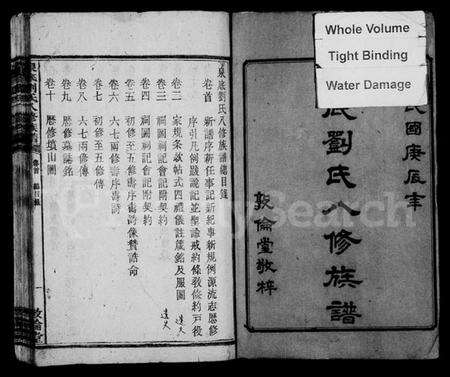 Whole Volume
Tight Binding
Water Damage
民國庚辰年
底劉氏八修族譜
敦倫堂敬梓
泉底劉氏八修族譜總目錄
卷首 新譜序新任事記新紀事新規例源流志歷修
序引凡例
卷二 家規条款帖式四禮儀註箴銘及服圖 遺文
卷三 祠圖祠記會記附契約 遺文
卷四 祠圖祠記會記附契約
卷五 初修至五修壽序壽詩像贊誥命
卷六 六七兩修壽序壽詩
卷七 初修至五修傳
卷八 六七兩修傳
卷九 歷修墓誌銘
卷十 歷修墳山圖
卷首
總目錄
一
敦倫堂